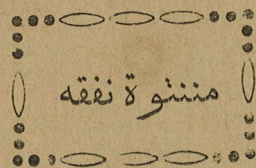 مننتوة نفقه